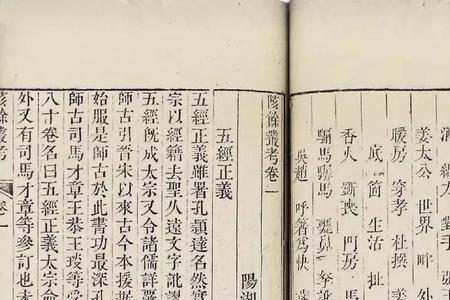 姜太公 世界 畔 外
暖房 穿孝 杜撰
底 箇 生活 扯
香火 喪 門房
騸馬騍馬
陔餘叢考卷一
陽湖
五經正義
五經正義雖署孔頴達名然實
宗以經籍去聖久遠文字訛謬
五經既成太宗又令諸儒詳
師古引晉宋以來古今本援
始服是師古於此書功最深
師古司馬才章王恭王琰等受
八十卷名曰五經正義太宗命
外又有司馬才章等參訂也
陔餘叢考 卷一